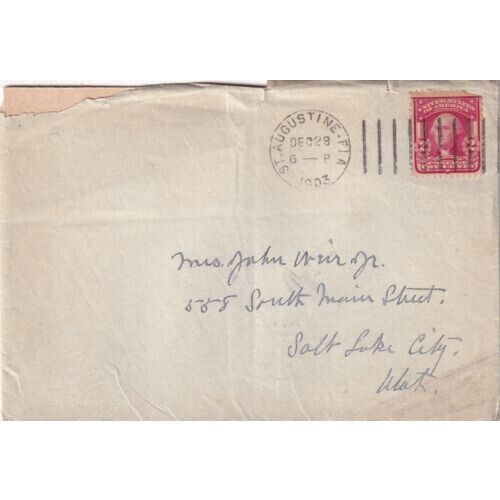 ST. AUGUSTINE. FLA
DEC 28
6 — P
1903
UNITED STATES
OF AMERICA
2 2
TWO CENTS
Mrs. John Weir Jr.
558 South Main Street.
Salt Lake City.
Utah.